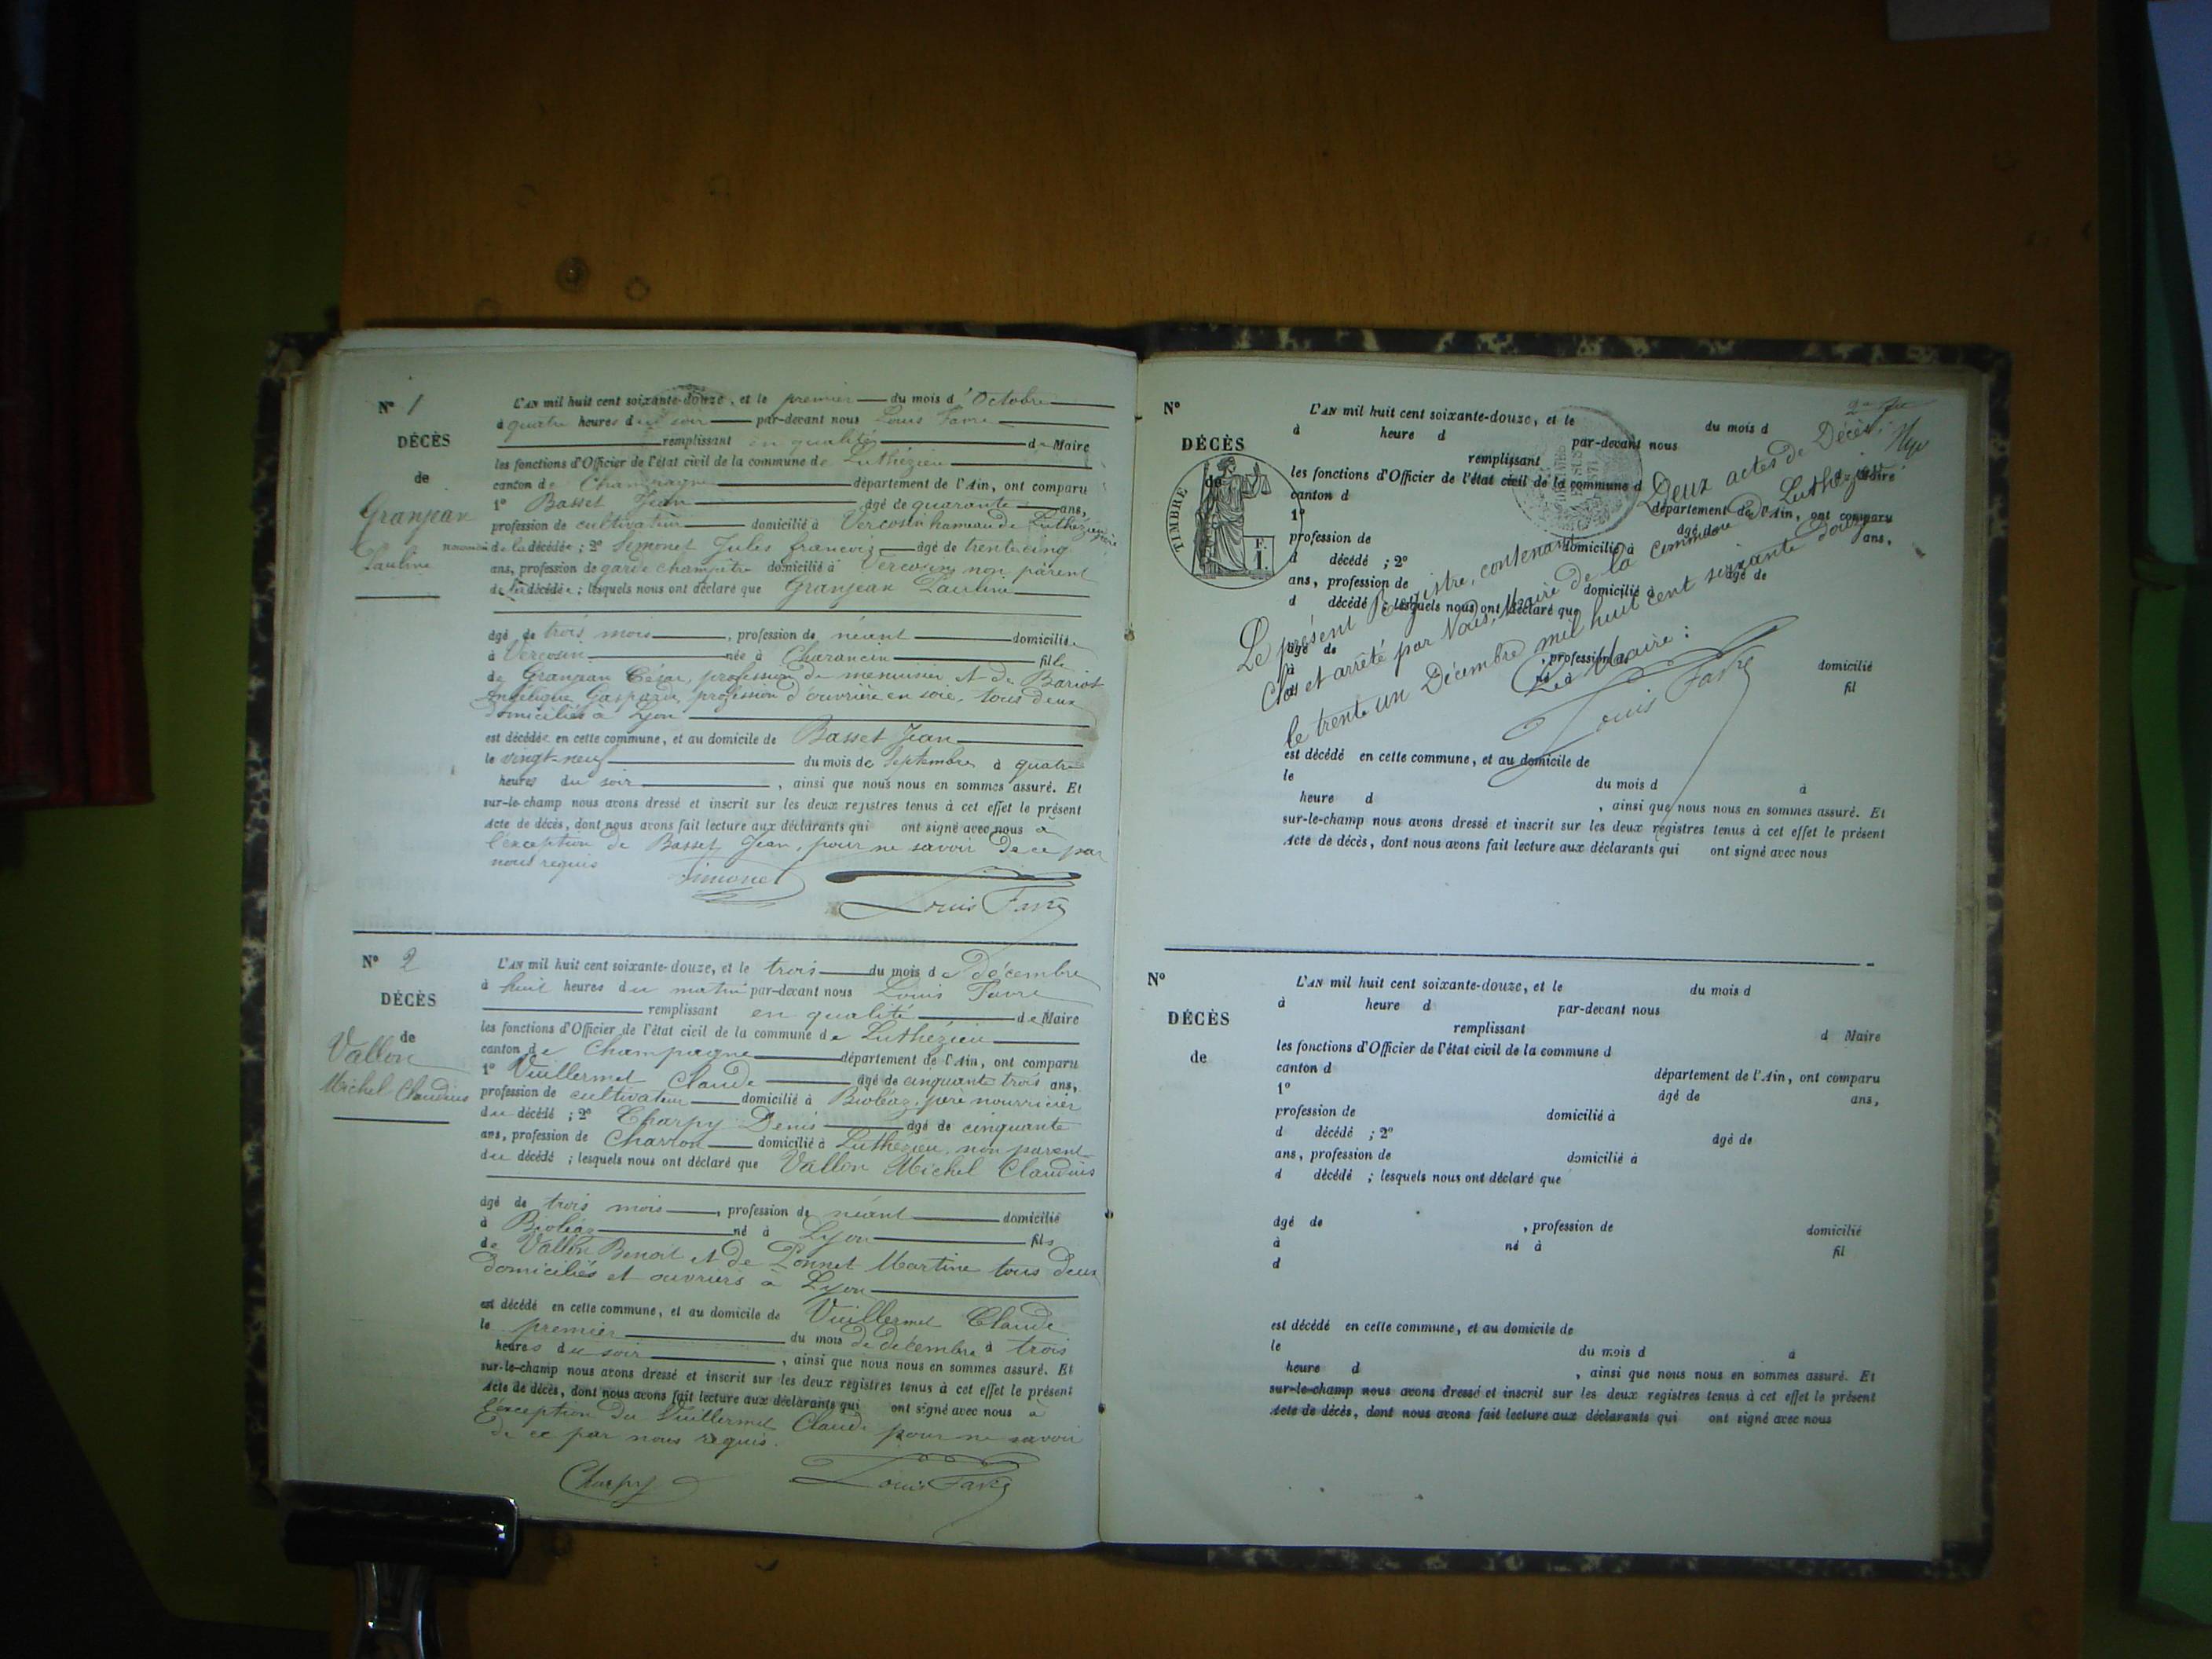 N° 1
DÉCÈS
de
Granjean
Pauline
L'AN mil huit cent soixante-douze, et le premier du mois d'Octobre
à quatre heures du soir par-devant nous Louis Favre
remplissant en qualité de Maire
les fonctions d'Officier de l'état civil de la commune de Luthézieu
canton de Champagne département de l'Ain, ont comparu
1° Basset Jean âgé de quarante ans,
profession de cultivateur domicilié à Vercosin hameau de Luthézieu
de la décédée ; 2° Simonet Jules françois âgé de trente cinq
ans, profession de garde champêtre domicilié à Vercosin non parent
de la décédée ; lesquels nous ont déclaré que Granjean Pauline
âgé de trois mois, profession de néant domiciliée
à Vercosin née à Charancin fille
de Granjean César, profession de menuisier et de Bariot
Angélique Gasparde, profession d'ouvrière en soie, tous deux
domiciliés à Lyon
est décédée en cette commune, et au domicile de Basset Jean
le vingt-neuf du mois de Septembre à quatre
heures du soir, ainsi que nous nous en sommes assuré. Et
sur-le-champ nous avons dressé et inscrit sur les deux registres tenus à cet effet le présent
Acte de décès, dont nous avons fait lecture aux déclarants qui ont signé avec nous à
l'exception de Basset Jean, pour ne savoir de ce par
nous requis
Simonet
Louis Favre
N° 2
DÉCÈS
de
Vallon
Michel Claudius
L'AN mil huit cent soixante-douze, et le trois du mois de décembre
à huit heures du matin par-devant nous Louis Favre
remplissant en qualité de Maire
les fonctions d'Officier de l'état civil de la commune de Luthézieu
canton de Champagne département de l'Ain, ont comparu
1° Vuillermet Claude âgé de cinquante trois ans,
profession de cultivateur domicilié à Bioléaz, père nourricier
du décédé ; 2° Charpy Denis âgé de cinquante
ans, profession de Charron domicilié à Luthézieu, non parent
du décédé ; lesquels nous ont déclaré que Vallon Michel Claudius
âgé de trois mois, profession de néant domicilié
à Bioléaz né à Lyon fils
de Vallon Benoit et de Ponnet Martine tous deux
domiciliés et ouvriers à Lyon
est décédé en cette commune, et au domicile de Vuillermet Claude
le premier du mois de décembre à trois
heures du soir, ainsi que nous nous en sommes assuré. Et
sur-le-champ nous avons dressé et inscrit sur les deux registres tenus à cet effet le présent
Acte de décès, dont nous avons fait lecture aux déclarants qui ont signé avec nous à
l'exception du Vuillermet Claude pour ne savoir
de ce par nous requis.
Charpy
Louis Favre
N°
DÉCÈS
de
TIMBRE
F.
1.
L'AN mil huit cent soixante-douze, et le du mois d
à heure d par-devant nous
remplissant d Maire
les fonctions d'Officier de l'état civil de la commune d
canton d département de l'Ain, ont comparu
1° âgé de ans,
profession de domicilié à
d décédé ; 2° âgé de
ans, profession de domicilié à
d décédé ; lesquels nous ont déclaré que
âgé de , profession de domicilié
à né à fil
d
Le présent Registre, contenant Deux actes de Décès,
Clos et arrêté par Nous, Maire de la commune de Luthézieu
le trente un Décembre mil huit cent soixante douze
Le Maire :
Louis Favre
est décédé en cette commune, et au domicile de
le du mois d à
heure d , ainsi que nous nous en sommes assuré. Et
sur-le-champ nous avons dressé et inscrit sur les deux registres tenus à cet effet le présent
Acte de décès, dont nous avons fait lecture aux déclarants qui ont signé avec nous
N°
DÉCÈS
de
L'AN mil huit cent soixante-douze, et le du mois d
à heure d par-devant nous
remplissant d Maire
les fonctions d'Officier de l'état civil de la commune d
canton d département de l'Ain, ont comparu
1° âgé de ans,
profession de domicilié à
d décédé ; 2° âgé de
ans, profession de domicilié à
d décédé ; lesquels nous ont déclaré que
âgé de , profession de domicilié
à né à fil
d
est décédé en cette commune, et au domicile de
le du mois d à
heure d , ainsi que nous nous en sommes assuré. Et
sur-le-champ nous avons dressé et inscrit sur les deux registres tenus à cet effet le présent
Acte de décès, dont nous avons fait lecture aux déclarants qui ont signé avec nous